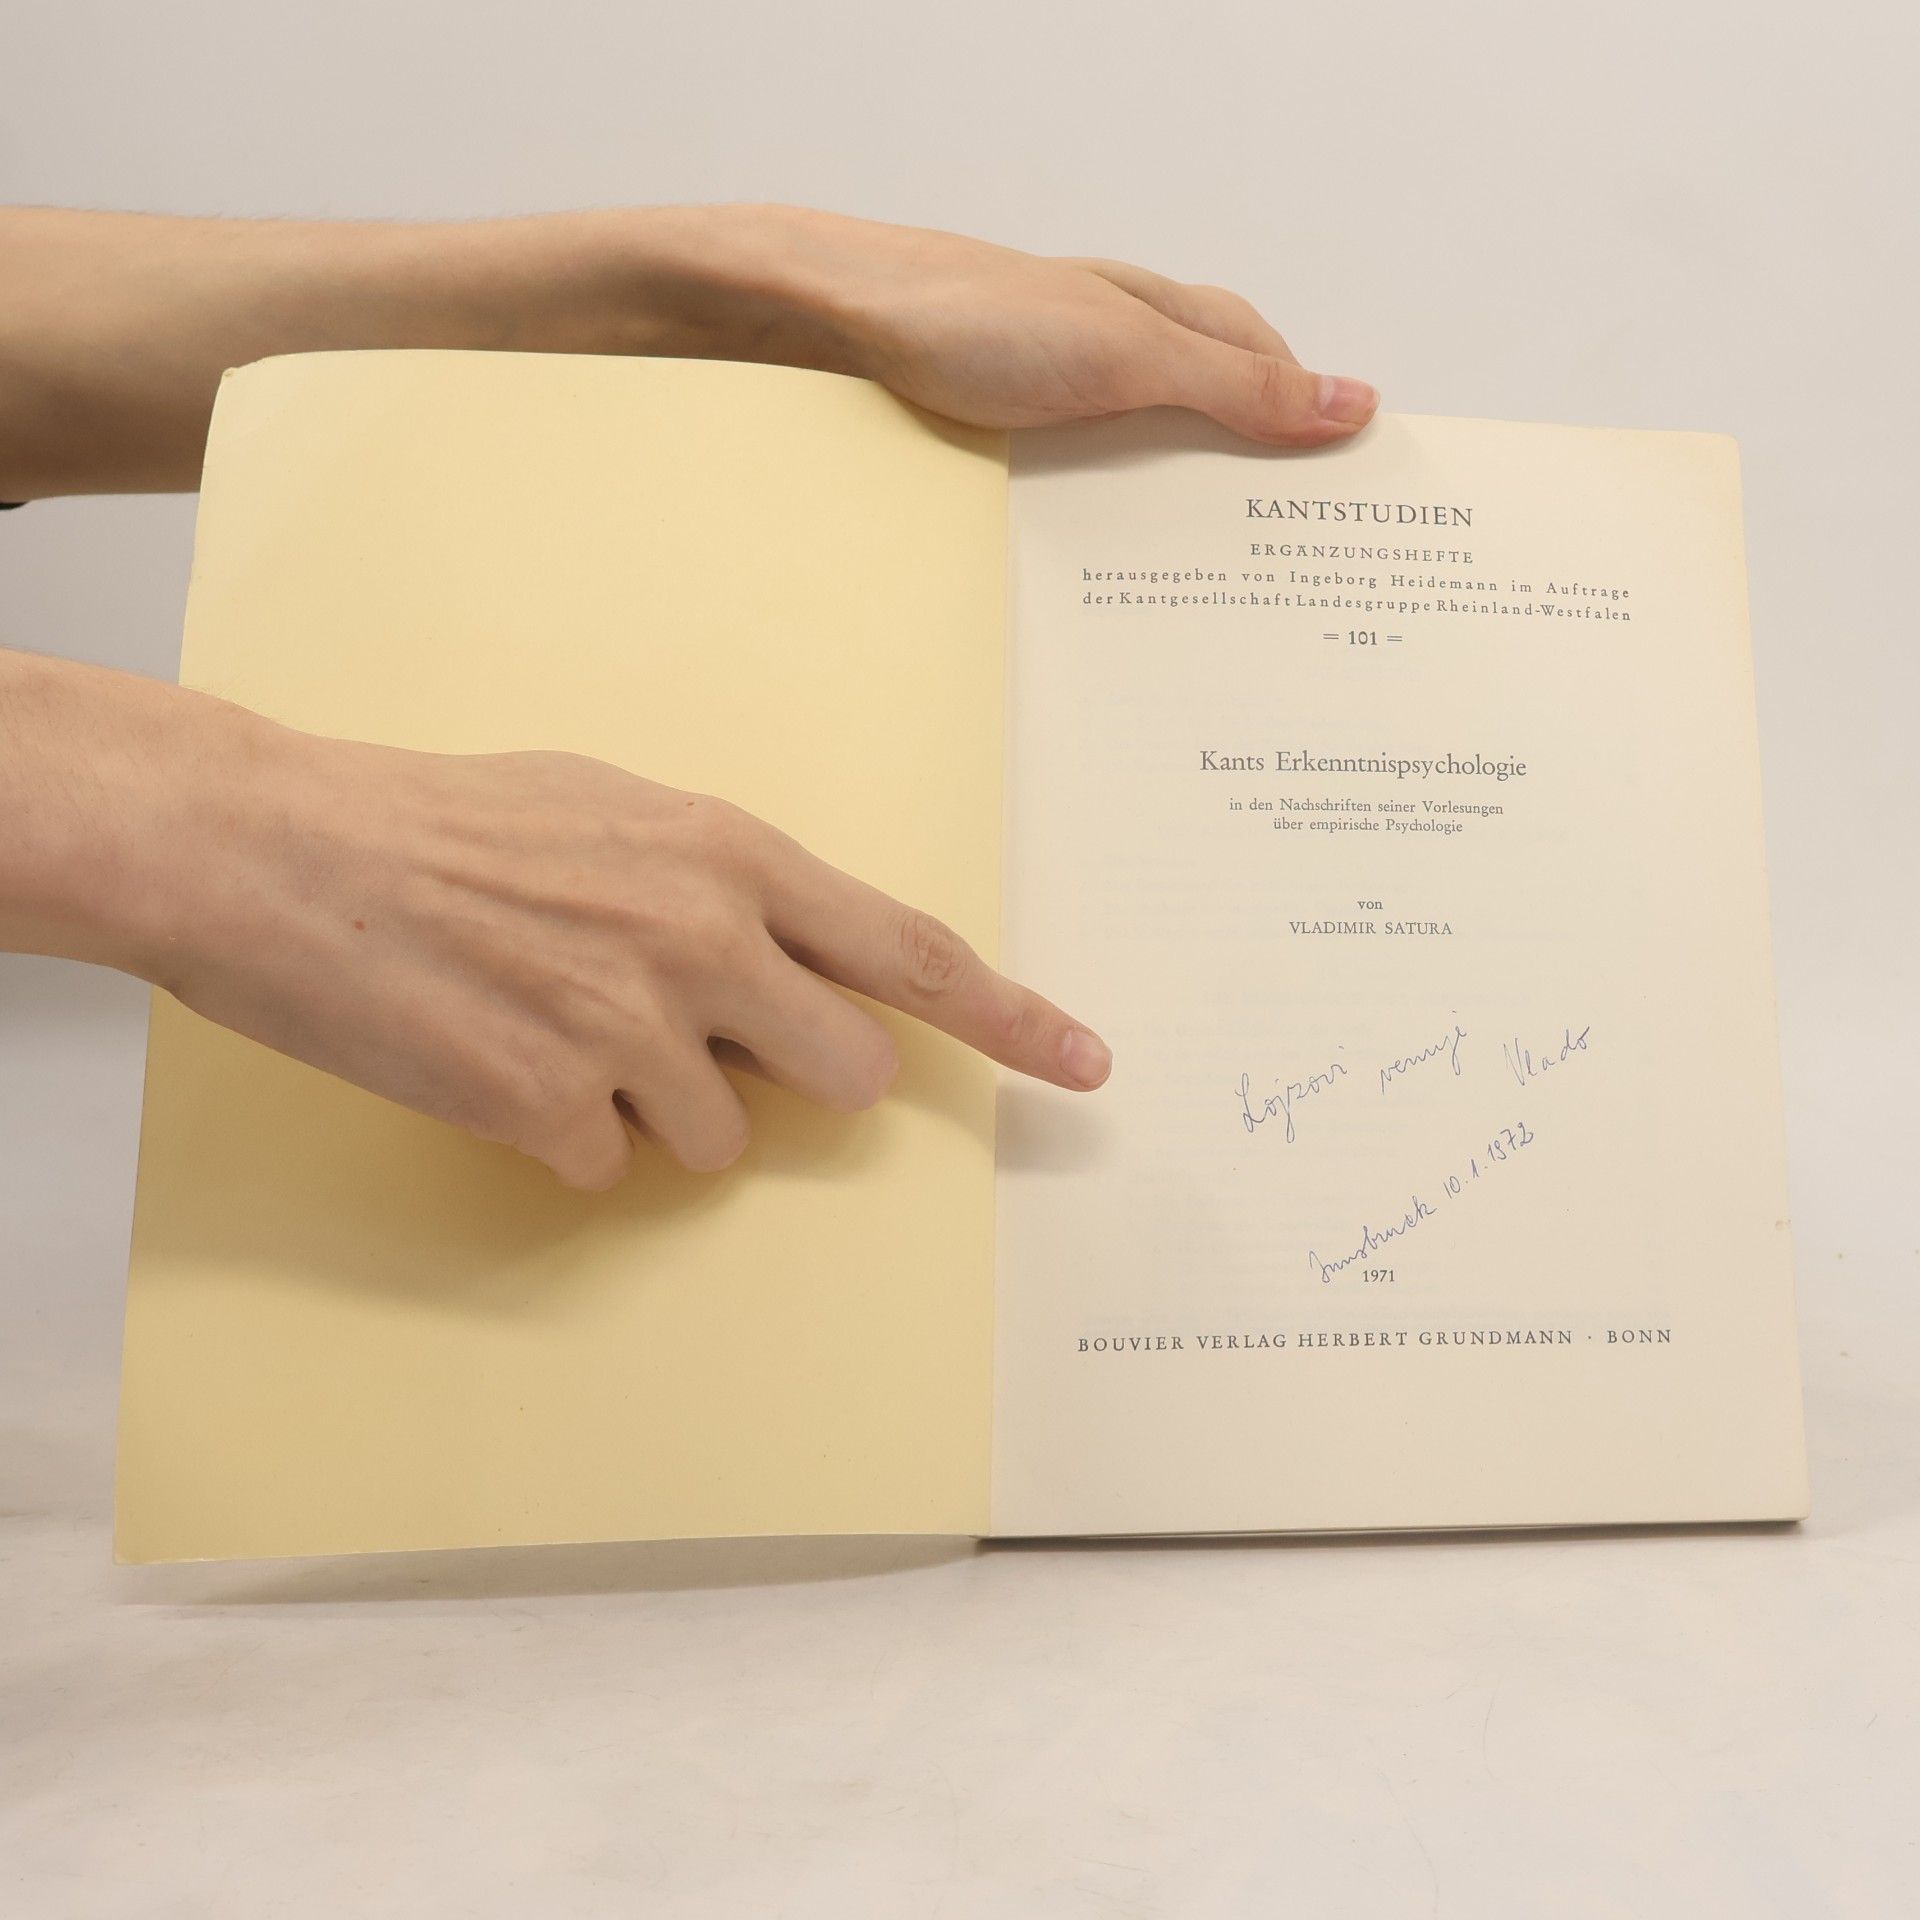 KANTSTUDIEN
ERGÄNZUNGSHEFTE
herausgegeben von Ingeborg Heidemann im Auftrage
der Kantgesellschaft Landesgruppe Rheinland-Westfalen
= 101 =
Kants Erkenntnispsychologie
in den Nachschriften seiner Vorlesungen
über empirische Psychologie
von
VLADIMIR SATURA
Lojzovi venuje Vlado
Innsbruck 10.1.1972
1971
BOUVIER VERLAG HERBERT GRUNDMANN · BONN